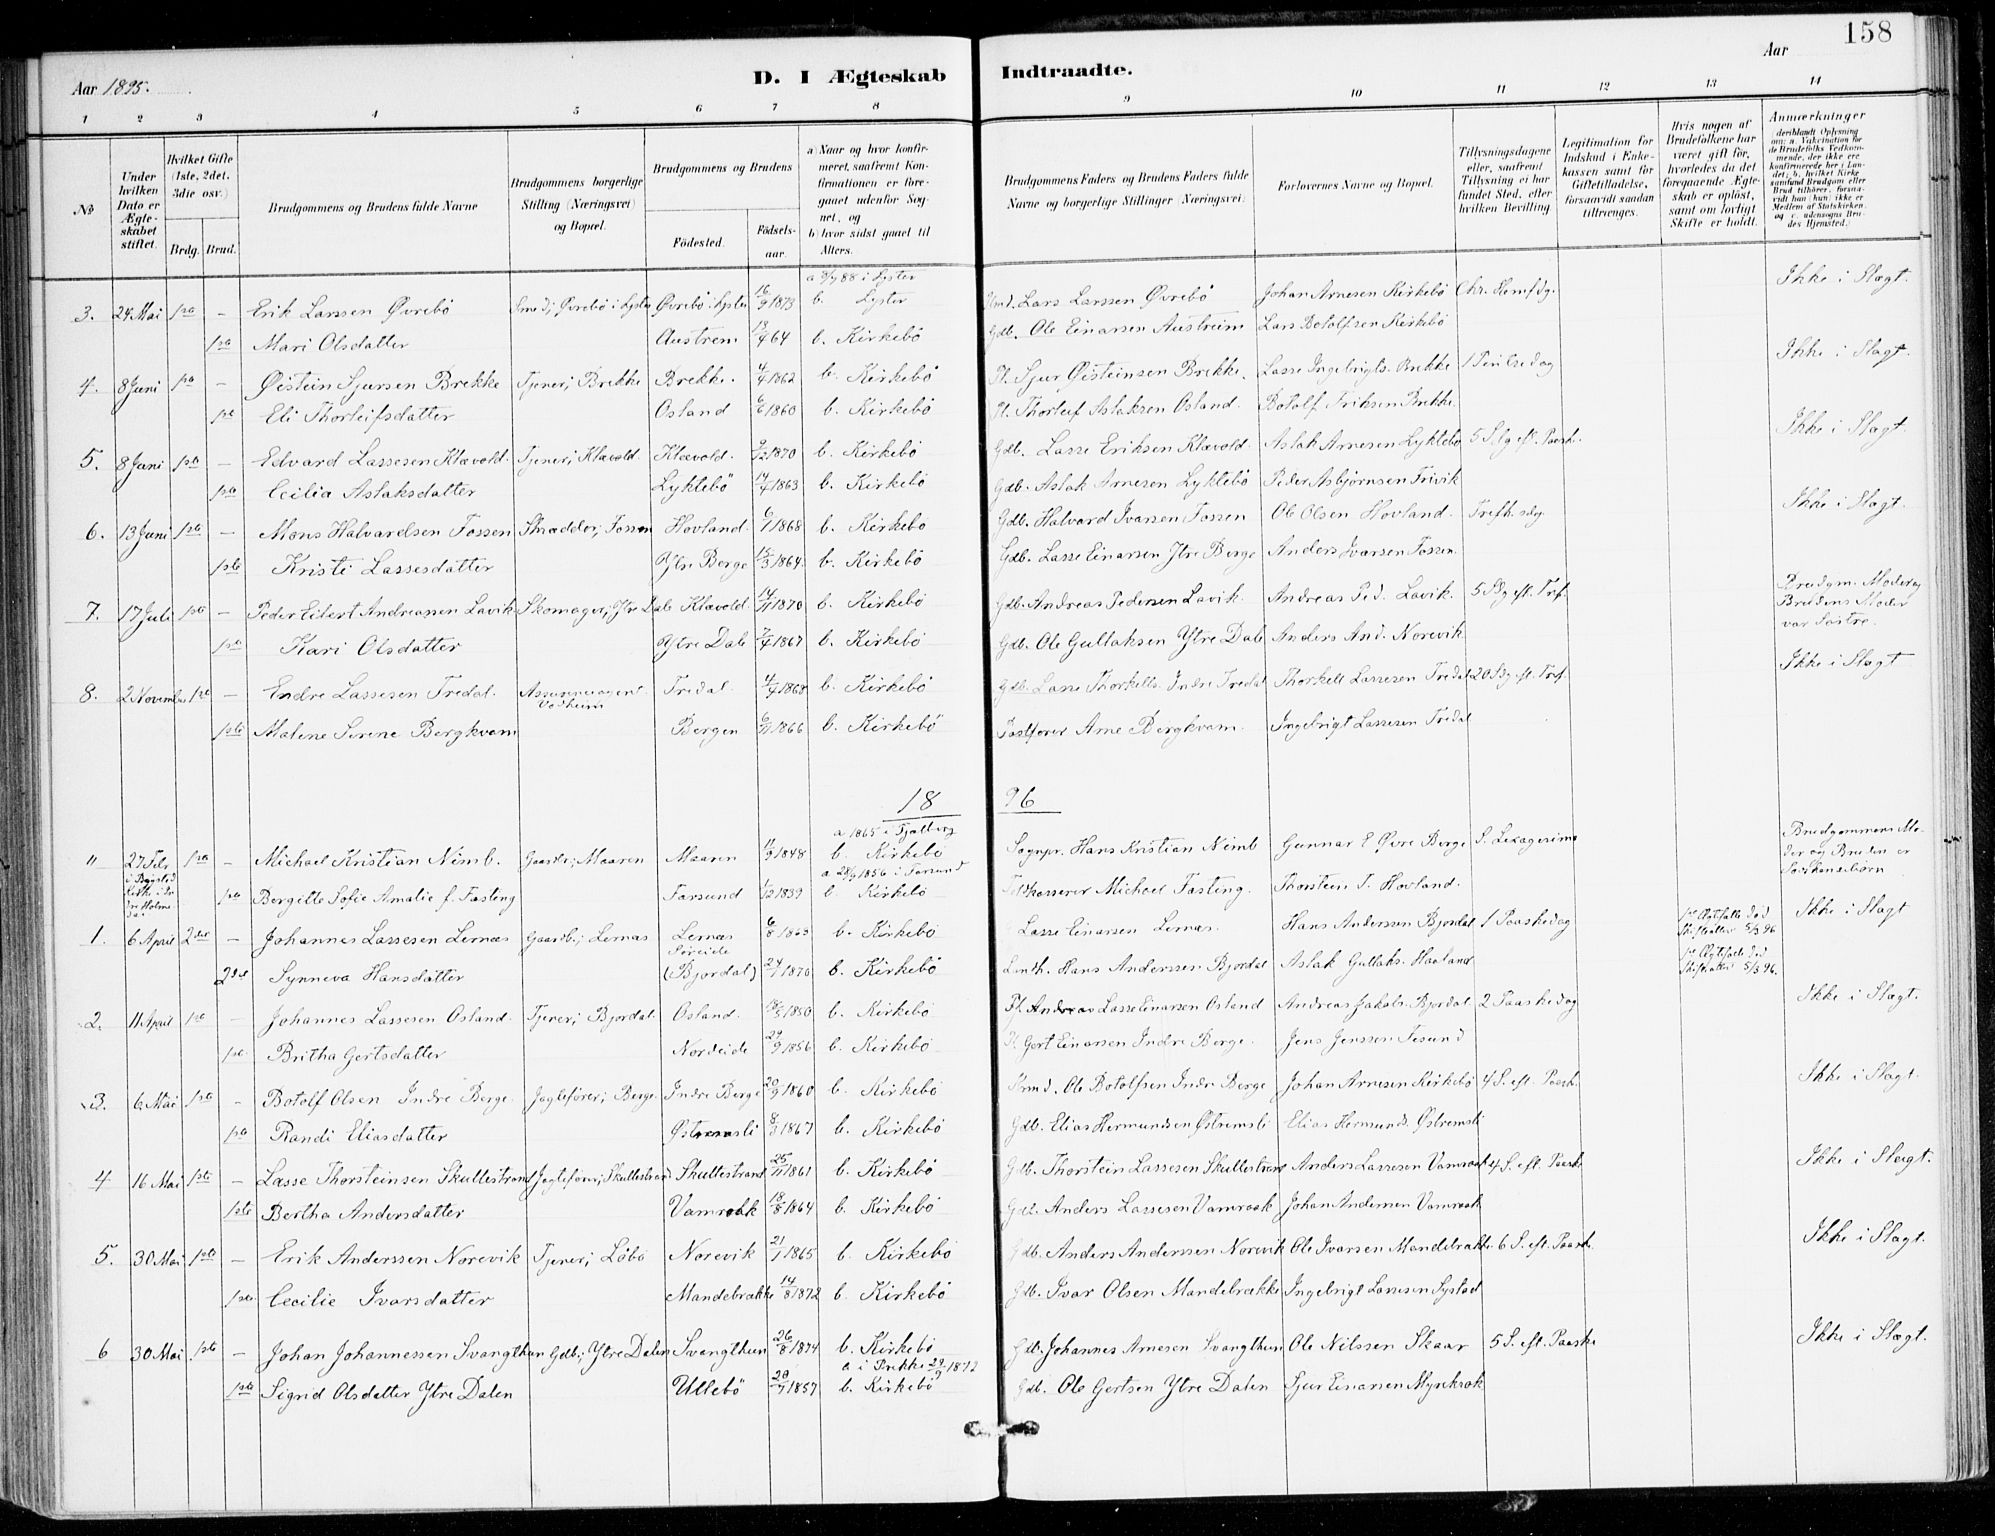 158
Aar 1895.
D. I Ægteskab Indtraadte.
Aar
1 2 3 4 5 6 7 8 9 10 11 12 13 14
№
Under hvilken Dato er Ægteskabet stiftet.
Hvilket Gifte (1ste, 2det, 3die osv.)
Brdg. Brud.
Brudgommens og Brudens fulde Navne
Brudgommens borgerlige Stilling (Næringsvei) og Bopæl.
Brudgommens og Brudens
Fødested. Fødselsaar.
a) Naar og hvor konfirmeret, saafremt Konfirmationen er foregaaet udenfor Sognet, og
b) hvor sidst gaaet til Alters.
Brudgommens Faders og Brudens Faders fulde Navne og borgerlige Stillinger (Næringsvei).
Forlovernes Navne og Bopæl.
Tillysningsdagene eller, saafremt Tillysning ei har fundet Sted, efter hvilken Bevilling
Legitimation for Indskud i Enkekassen samt for Giftetilladelse, forsaavidt saadan tiltrænges.
Hvis nogen af Brudefolkene har været gift før, hvorledes da det foregaaende Ægteskab er opløst, samt om lovligt Skifte er holdt.
Anmærkninger (deriblandt Oplysning om: a. Vakcination for de Brudefolks Vedkommende, der ikke ere konfirmerede her i Landet; b. hvilket Kirkesamfund Brudgom eller Brud tilhører, forsaavidt han (hun) ikke er Medlem af Statskirken, og c. udensogns Brudes Hjemsted.)
a 8/7 88 i Lyster
3. 24 Mai 1ste – Erik Larssen Øvrebö Smed, Øvrebö i Lyster Øvrebö i Lyster 16/9 1873 b. Lyster Lars Larssen Øvrebö Johan Arnesen Kirkebö Chr. Hemf.dg. Ikke i Slægt.
1ste Mari Olsdatter Austrem 13/4 64 b. Kirkebö Gdb. Ole Einarsen Austreim Lars Botolfsen Kirkebö
4. 8 Juni 1ste – Øistein Sjursen Brekke Tjener, Brekke Brekke. 4/4 1862 b. Kirkebö Pl. Sjur Øisteinsen Brekke. Lasse Ingebrigts. Brekke 1 Pintsedag Ikke i Slægt.
1ste Eli Thorleifsdatter Osland 6/6 1860 b. Kirkebö Pl. Thorleif Aslaksen Osland. Botolf Eriksen Brekke
5. 8 Juni 1ste – Edvard Lassesen Klævold. Tjener, Klævold. Klævold. 9/12 1870 b. Kirkebö Gdb. Lasse Eriksen Klævold. Aslak Arnesen Lyklebö 5 Sdg eft. Paask. Ikke i Slægt.
1ste Cecilia Aslaksdatter Lyklebö 14/7 1863 b. Kirkebö Gdb. Aslak Arnesen Lyklebö Peder Asbjørnsen Trivik
6. 13 Juni 1ste – Mons Halvardsen Fossen Skrædder, Fossen Hovland. 6/1 1868 b. Kirkebö Gdb. Halvard Ivarsen Fossen Ole Olsen Hovland. Trefh. sdg. Ikke i Slægt.
1ste Kristi Lassesdatter Ytre Berge 13/3 1864. b. Kirkebö Gdb. Lasse Einarsen Ytre Berge Anders Ivarsen Fossen.
7. 17 Juli 1ste – Peder Eilert Andreasen Lavik Skomager, Ytre Dale Klævold. 14/11 1870 b. Kirkebö Gdb. Andreas Pedersen Lavik. Andreas Ped. Lavik. 5 Sdg eft. Tref. Brudgm. Moder og Brudens Moder var Søstre.
1ste Kari Olsdatter Ytre Dale 1867 b. Kirkebö Gdb. Ole Gullaksen Ytre Dale Anders And. Norevik
8. 2 November 1ste – Endre Lassesen Tredal. Assuranceagent Vadheim Tredal. 4/7 1868 b. Kirkebö Gdb. Lasse Thorkells. Indre Tredal Thorkell Lassesen Tredal 20 Sdg eft. Tref. Ikke i Slægt
1ste Malene Serene Bergkvam Bergen 6/11 1866 b. Kirkebö Postfører Arne Bergkvam. Ingebrigt Lassesen Tredal
18 96
a 1865 i Fjalberg
" 27 Febr 1ste – Michael Kristian Nimb. Gaardbr, Maaren Maaren 11/9 1848 b. Kirkebö Sognpr. Hans Kristian Nimb Gunnar E Øvre Berge S. Sexagesima Brudgommens Moder og Bruden er Søskendebørn
a 28/9 1856 i Farsund
1ste Bergitte Sofie Amalie f. Fasting Farsund 1/12 1839 b. Kirkebö Toldkasserer Michael Fasting. Thorstein T. Hovland.
1. 6 April 2det – Johannes Lassesen Lernæs Gaardbr, Lernæs Lernæs 6/8 1863 b. Kirkebö Lasse Einarsen Lernæs. Hans Andersen Bjordal 1 Paaskedag 1ste Ægtefælle død Skifteattest 5/3 96 Ikke i Slægt
2det Synneva Hansdatter Søreide (Bjordal) 24/1 1870 b. Kirkebö Hans Anderssen Bjordal Aslak Gullaks. Haaland 1ste Ægtefælle død Skifteattest 5/3 96.
2. 11 April 1ste – Johannes Lassesen Osland. Tjener, Bjordal. Osland. 18/5 1850 b. Kirkebö Pl. Lasse Einarsen Osland Andreas Jakobs. Bjordal 2 Paaskedag Ikke i Slægt.
1ste Britha Gertsdatter Nordeide 29/9 1856 b. Kirkebö Pl Gert Einarsen Indre Berge. Jens Jenssen Tesund
3. 6 Mai 1ste – Botolf Olsen Indre Berge. Jagtfører, Berge. Indre Berge 20/9 1860 b. Kirkebö Ole Botolfsen Indre Berge Johan Arnesen Kirkebö 4 S. eft. Paask. Ikke i Slægt.
1ste Randi Eliasdatter Østremsli 8/3 1867 b. Kirkebö Gdb. Elias Hermundsen Østremsli Elias Hermunds. Østremsli
4 16 Mai 1ste – Lasse Thorsteinsen Skullestrand Jagtfører, Skullestrand Skullestrand 25/11 1861 b. Kirkebö Gdb. Thorstein Lassesen Skullestrand Anders Lassesen Vamraak 4 S. eft. Paask. Ikke i Slægt.
1ste Bertha Andersdatter Vamraak 18/8 1864 b. Kirkebö Gdb. Anders Lassesen Vamraak Johan Andersen Vamraak
5. 30 Mai 1ste – Erik Anderssen Norevik Tjener, Løbö Norevik 21/1 1865 b. Kirkebö Gdb. Anders Anderssen Norevik Ole Ivarsen Mandebrække 6 S. eft. Paask. Ikke i Slægt.
1ste Cecilie Ivarsdatter Mandebrække 14/8 1872 b. Kirkebö Gdb. Ivar Olsen Mandebrække Ingebrigt Larssen Systad
6 30 Mai 1ste – Johan Johannessen Svangthun Gdb., Ytre Dalen Svangthun 26/8 1874 b. Kirkebö Gdb. Johannes Arnesen Svangthun Ole Nilssen Skaar 5 S. eft. Paaske Ikke i Slægt.
a i Brekke 29/9 1872
1ste Sigrid Olsdatter Ytre Dalen Ullebö 20/7 1857 b. Kirkebö Gdb. Ole Gertsen Ytre Dalen Sjur Einarsen Myrekrok